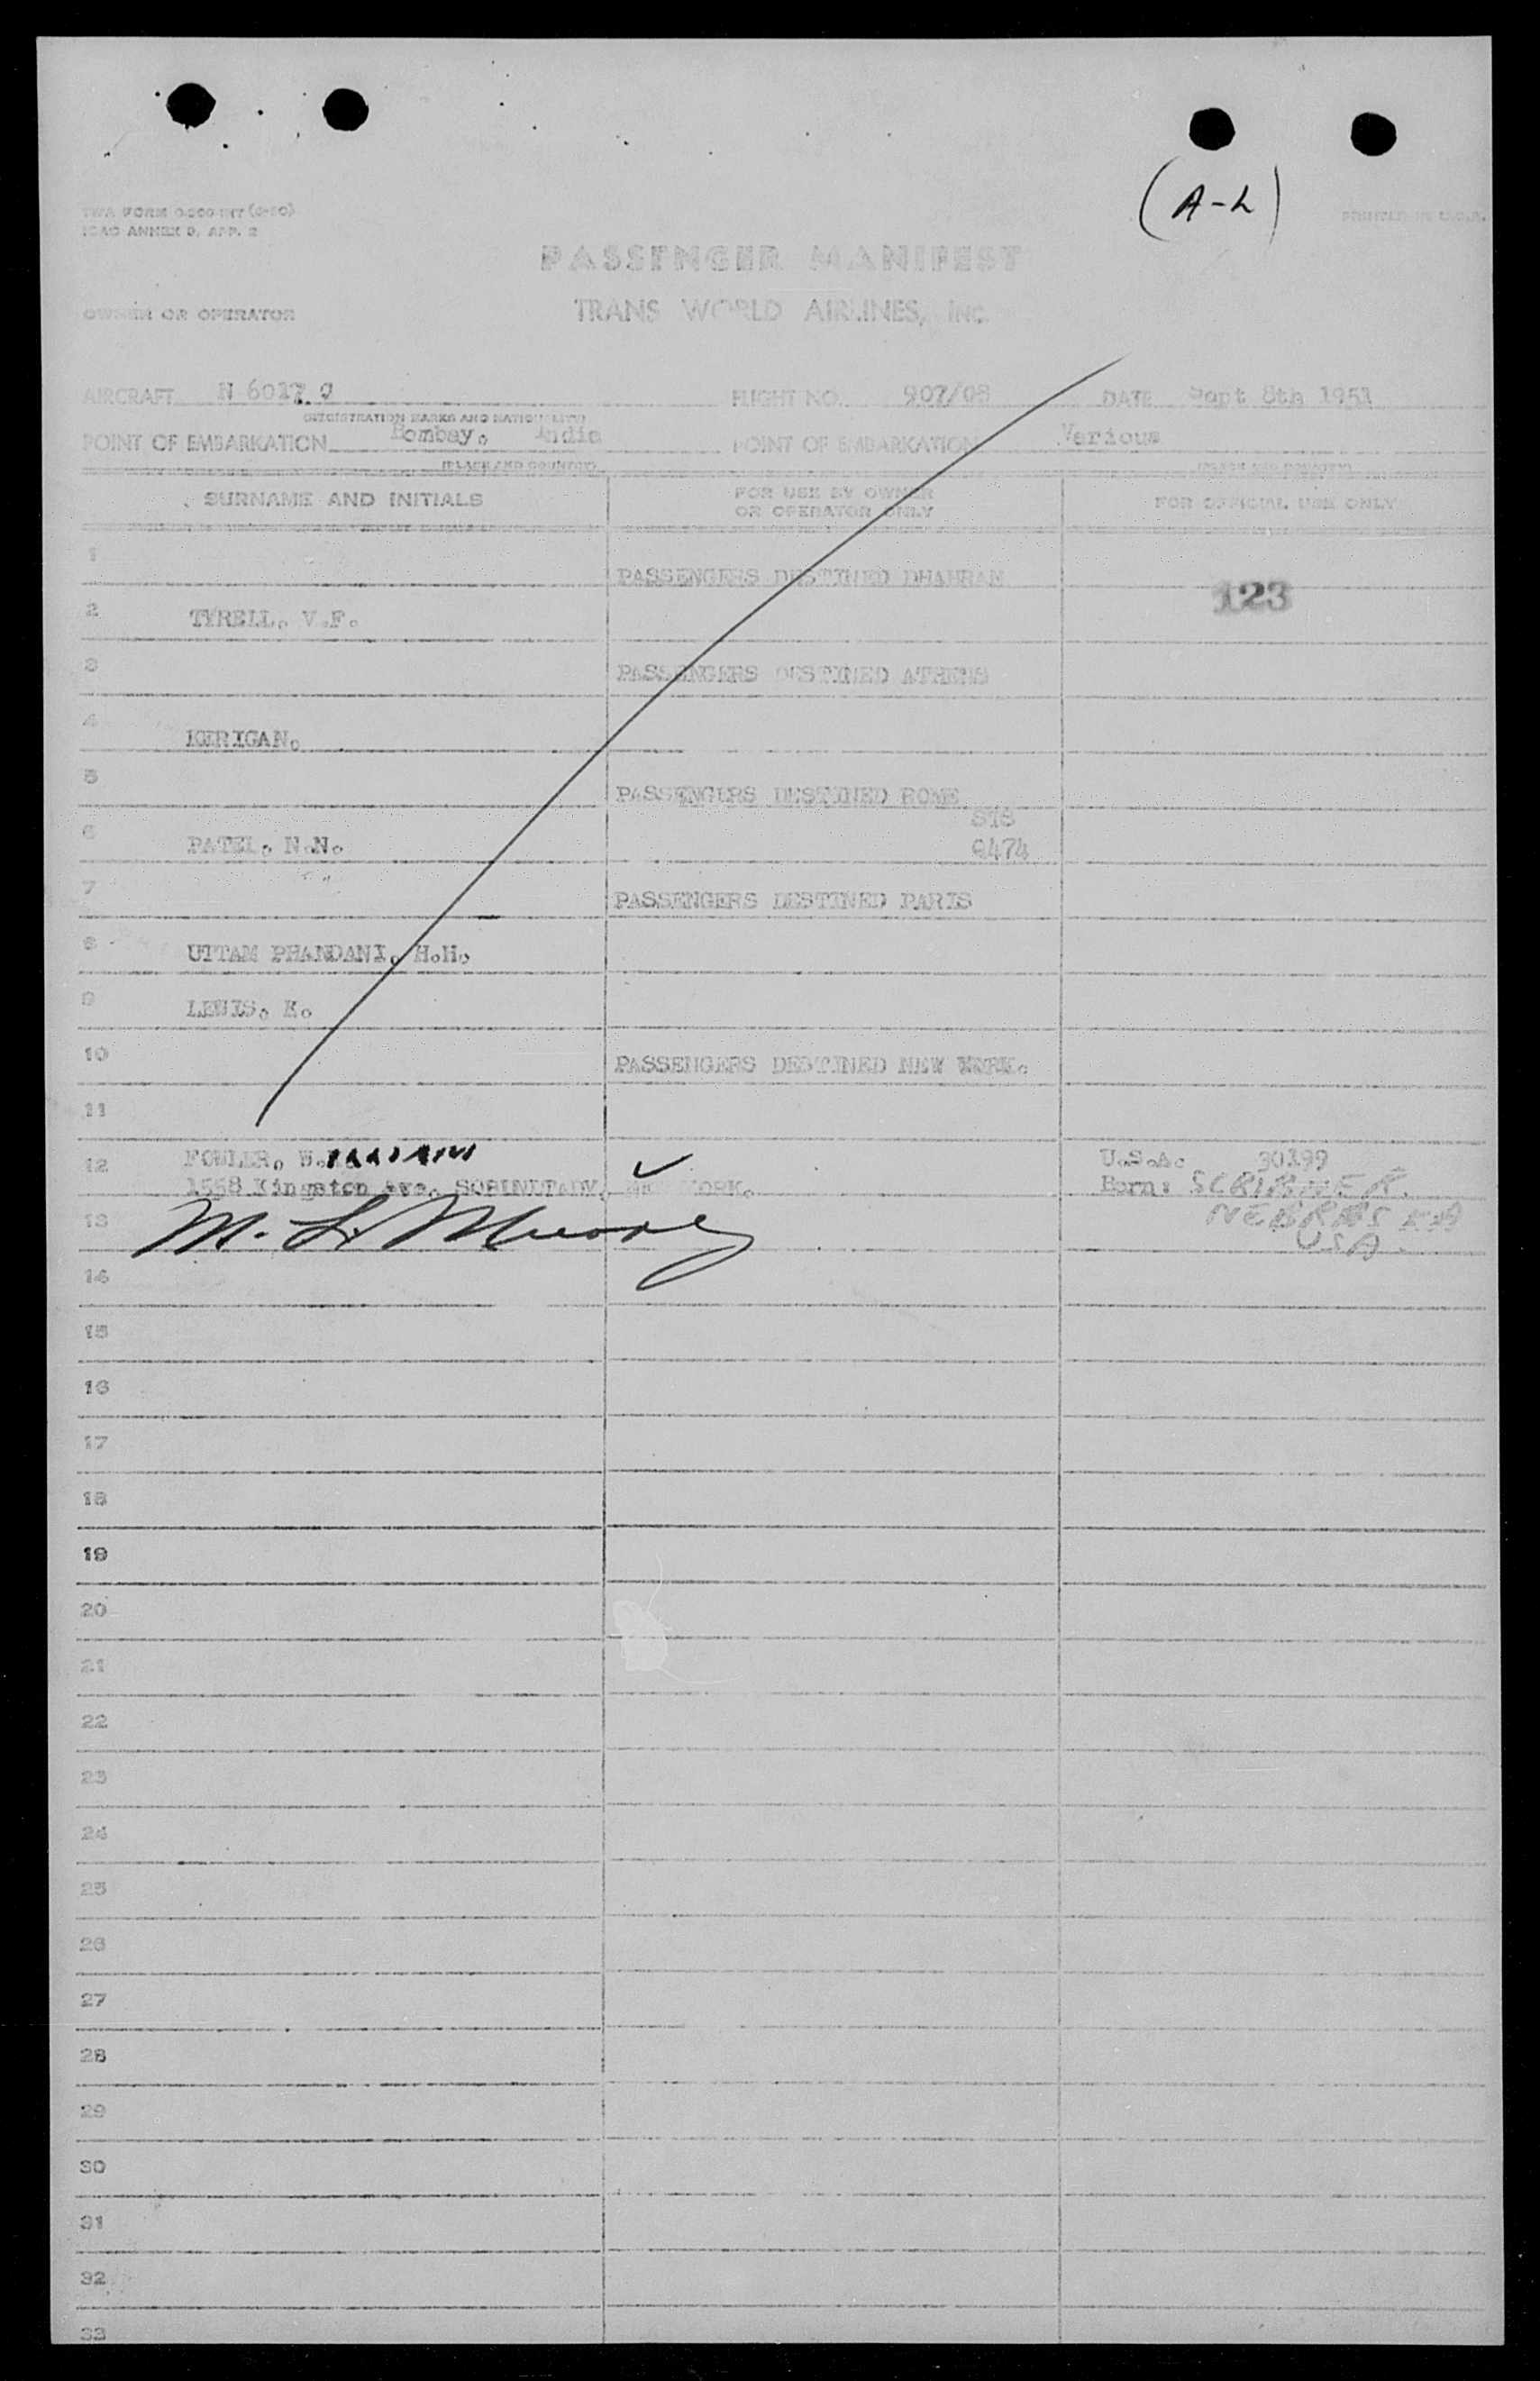 (A-L)
TWA FORM
ICAO ANNEX 9, APP. 2
PRINTED IN U.S.A.
PASSENGER MANIFEST
OWNER OR OPERATOR TRANS WORLD AIRLINES, INC.
AIRCRAFT N 6017 C FLIGHT NO. 907/08 DATE Sept 8th 1951
(REGISTRATION MARKS AND NATIONALITY)
POINT OF EMBARKATION Bombay, India POINT OF EMBARKATION Various
(PLACE AND COUNTRY) (PLACE AND COUNTRY)
SURNAME AND INITIALS FOR USE BY OWNER OR OPERATOR ONLY FOR OFFICIAL USE ONLY
1 PASSENGERS DESTINED DHAHRAN
123
2 TYRELL. V.F.
3 PASSENGERS DESTINED ATHENS
4 KERIGAN.
5 PASSENGERS DESTINED ROME
STS
6 PATEL. N.N. 9474
7 PASSENGERS DESTINED PARIS
8 UTTAM PHANDANI. H.H.
9 LEWIS. K.
10 PASSENGERS DESTINED NEW YORK.
11
12 FOWLER. W. U.S.A. 30199
1558 Kingston Ave. NEW YORK. Born: SCRIBNER.
13 M. L. NEBRASKA
USA.
14
15
16
17
18
19
20
21
22
23
24
25
26
27
28
29
30
31
32
33